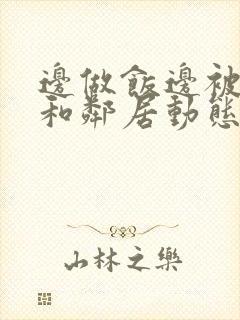 邊做飯邊被
和鄰居動態
山林之樂